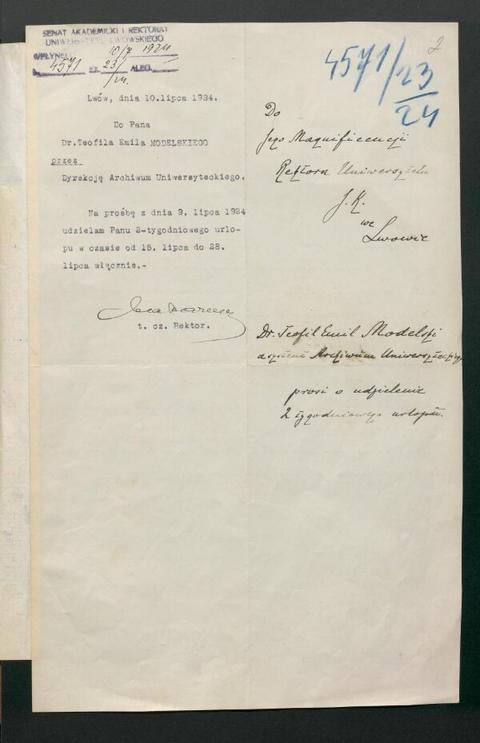 SENAT AKADEMICKI I REKTORAT
UNIWERSYTETU LWOWSKIEGO
10/7 1924
4571 23/24
Lwów, dnia 10.lipca 1924.
Do Pana
Dr.Teofila Emila MODELSKIEGO
przez
Dyrekcję Archiwum Uniwersyteckiego.
Na prośbę z dnia 9. lipca 1924
udzielam Panu 2-tygodniowego urlo-
pu w czasie od 15. lipca do 28.
lipca włącznie.-
t. cz. Rektor.
4571/23/24
2
Do
Jego Magnificencji
Rektora Uniwersytetu
J. K.
we
Lwowie
Dr. Teofil Emil Modelski
Archiwum Uniwersyteckiego
prosi o udzielenie
2 tygodniowego urlopu.